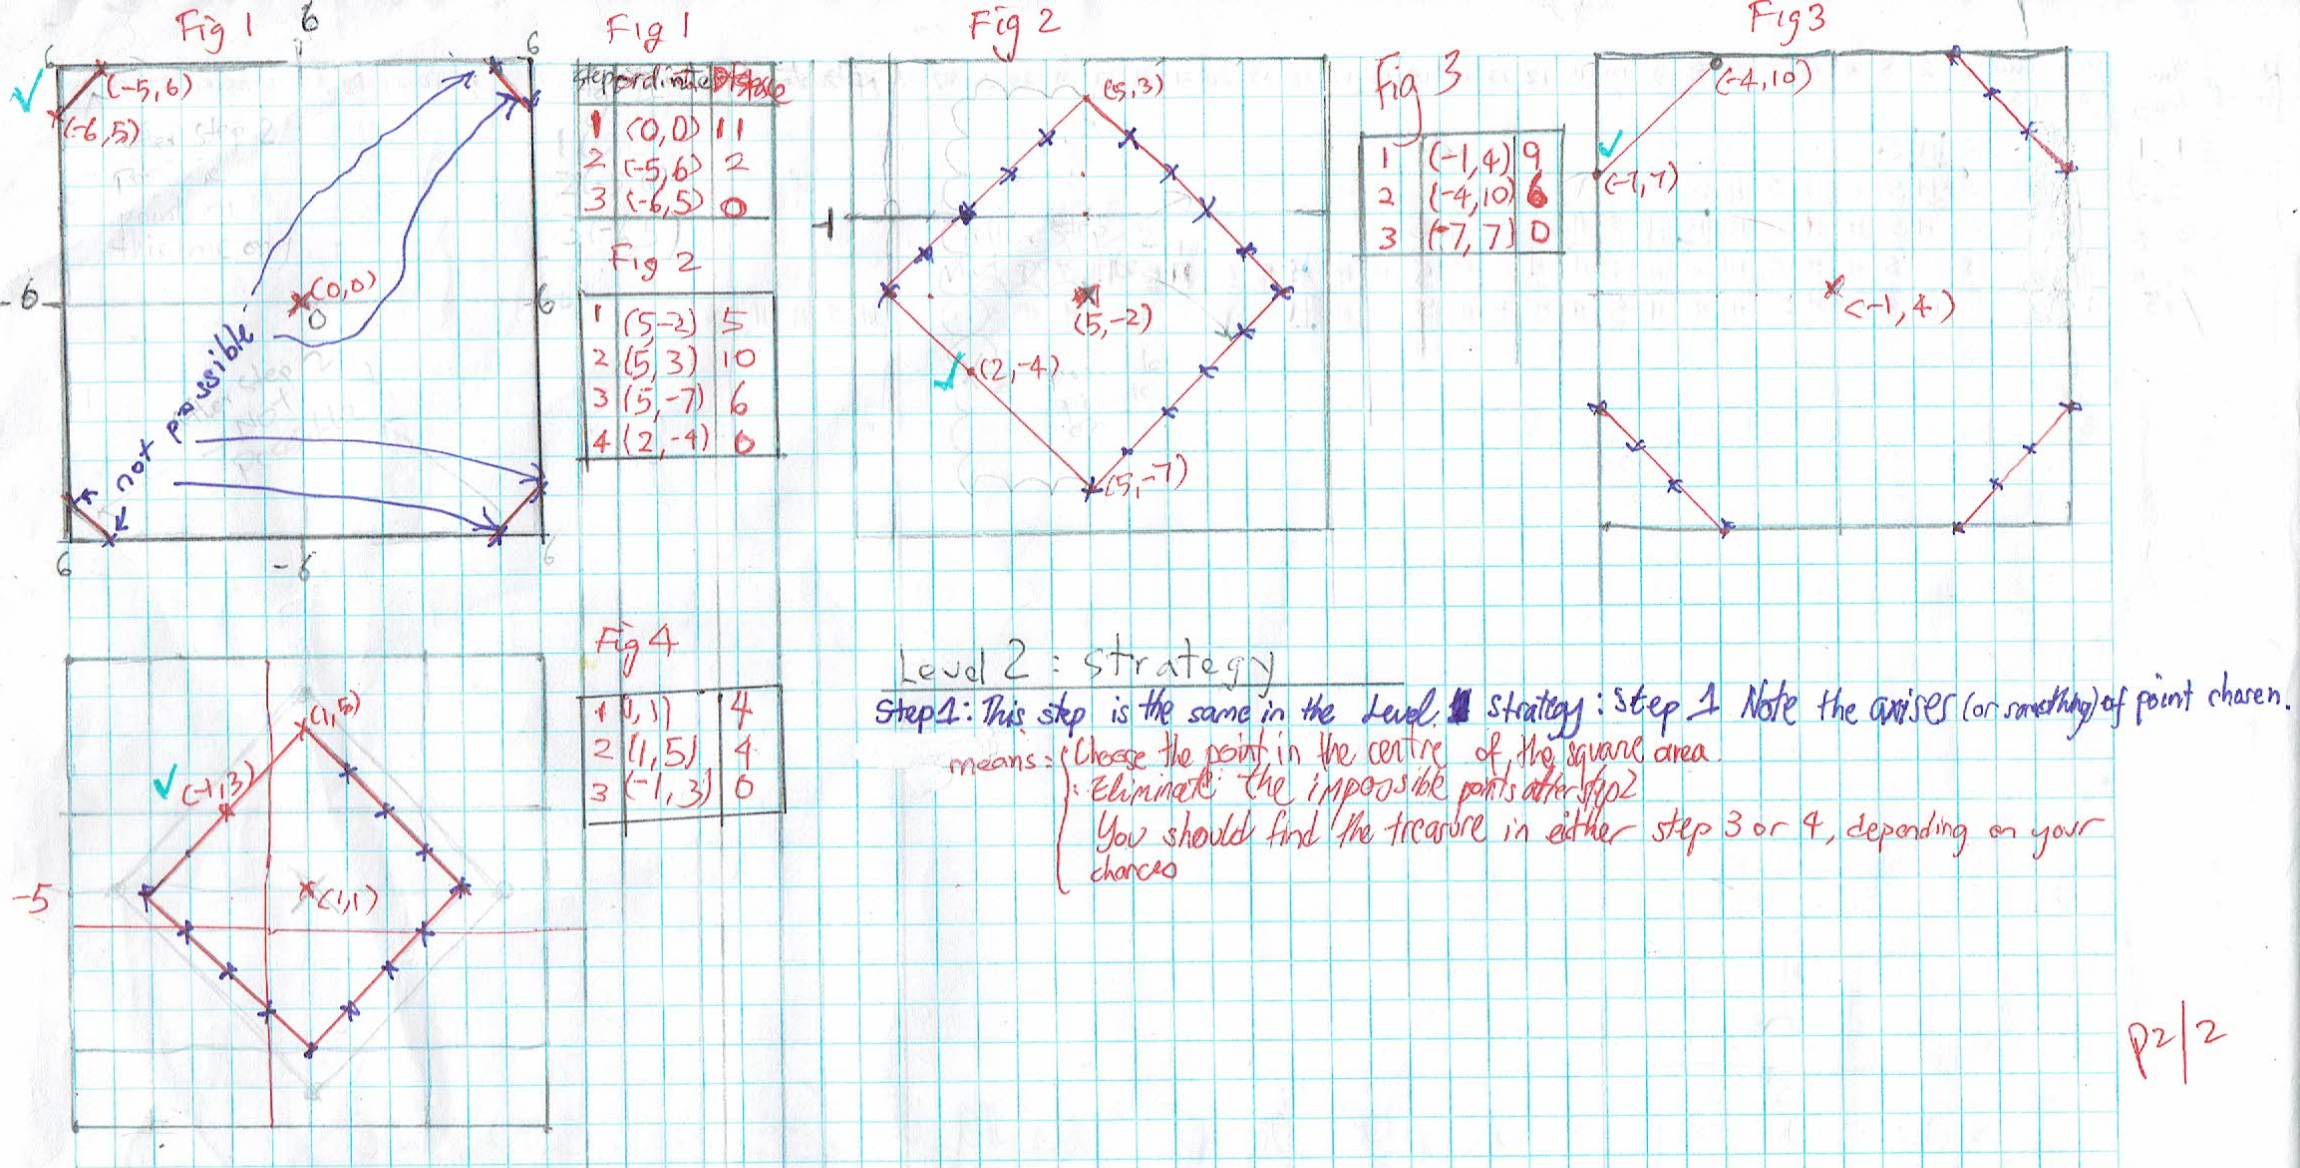 Fig 1
6
6
6
(-5,6)
(-6,5)
-6
(0,0)
0
6
not possible
6
-6
6
Fig 1
step ordinate
1 (0,0) 11
2 (-5,6) 2
3 (-6,5) 0
Fig 2
1 (5-2) 5
2 (5,3) 10
3 (5,-7) 6
4 (2,-4) 0
Fig 2
(5,3)
(5,-2)
(2,-4)
(5,-7)
Fig 3
1 (-1,4) 9
2 (-4,10) 6
3 (-7,7) 0
Fig3
(-4,10)
(-7,7)
(-1,4)
(1,5)
(-1,3)
(1,1)
-5
Fig 4
1 1,1) 4
2 (1,5) 4
3 (-1,3) 0
Level 2: strategy
Step1: This step is the same in the Level 1 strategy: Step 1 Note the axises (or something) of point chosen.
means: Choose the point in the centre of the square area.
: Eliminate: the impossible points after step2
You should find the treasure in either step 3 or 4, depending on your
chances
P2/2